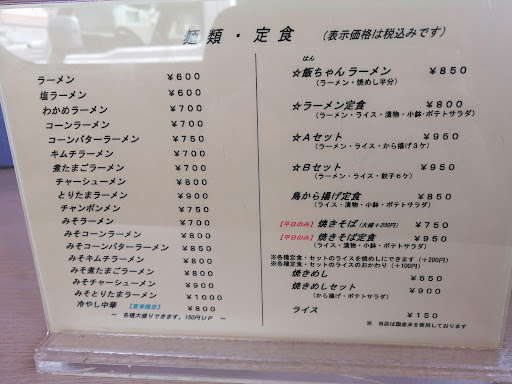 麺類・定食 (表示価格は税込みです)
ラーメン ￥600
塩ラーメン ￥600
わかめラーメン ￥700
コーンラーメン ￥700
コーンバターラーメン ￥750
キムチラーメン ￥700
煮たまごラーメン ￥700
チャーシューメン ￥800
とりたまラーメン ￥900
チャンポンメン ￥750
みそラーメン ￥700
みそコーンラーメン ￥800
みそコーンバターラーメン ￥850
みそキムチラーメン ￥800
みそ煮たまごラーメン ￥800
みそチャーシューメン ￥900
みそとりたまラーメン ￥1000
冷やし中華 【夏季限定】 ￥800
～ 各種大盛りできます。150円UP ～
はん
☆飯ちゃんラーメン ￥850
(ラーメン・焼めし半分)
☆ラーメン定食 ￥800
(ラーメン・ライス・漬物・小鉢・ポテトサラダ)
☆Aセット ￥950
(ラーメン・ライス・から揚げ3ケ)
☆Bセット ￥950
(ラーメン・ライス・餃子6ケ)
鳥から揚げ定食 ￥850
(ライス・漬物・小鉢・ポテトサラダ)
【平日のみ】 焼きそば (大盛+200円) ￥750
【平日のみ】 焼きそば定食 ￥950
(ライス・漬物・小鉢・ポテトサラダ)
※各種定食・セットのライスを焼めしにできます (+200円)
※各種定食・セットのライスのおかわり (+100円)
焼きめし ￥550
焼きめしセット ￥900
(から揚げ・ポテトサラダ)
ライス ￥150
※ 当店は国産米を使用しております